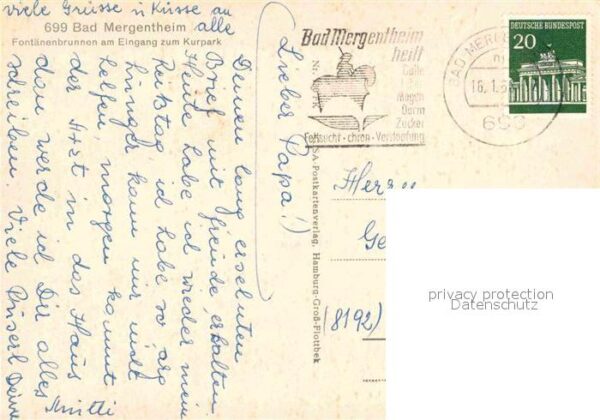 viele Grüsse u Küsse an
alle
699 Bad Mergentheim
Fontänenbrunnen am Eingang zum Kurpark
Lieber Papa!
Deinen lang ersehnten
Brief mit freude erhalten
Heute habe ich wieder mein
Reißtag, ich habe so arg
hunger kann mir nicht
helfen, morgen kommt
der Arzt in das Haus
dan werde ich Dir alles
schreiben. Viele Büserl Deine
Mutti
Bad Mergentheim
heilt
Galle
Magen
Darm
Zucker
Fettsucht - chron. Verstopfung
BAD MERGENTHEIM
16.1.6
699
DEUTSCHE BUNDESPOST
20
SA-Postkartenverlag, Hamburg-Groß-Flottbek
Herrn
Ge
(8192)
privacy protection
Datenschutz